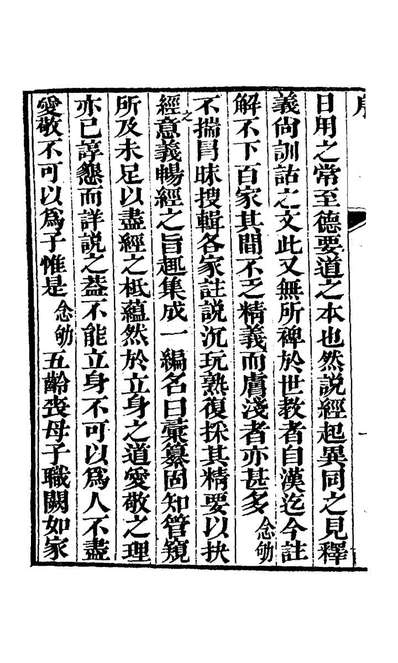 序
日用之常至德要道之本也然説經起異同之見釋
義尙訓詁之文此又無所裨於世敎者自漢迄今註
解不下百家其間不乏精義而膚淺者亦甚多念劬
不揣冐昧搜輯各家註説沉玩熟復採其精要以抉
經之意義暢經之旨趣集成一編名曰彙纂固知管窺
所及未足以盡經之柢藴然於立身之道愛敬之理
亦已諄懇而詳説之葢不能立身不可以爲人不盡
愛敬不可以爲子惟是念劬五齡喪母子職闕如家